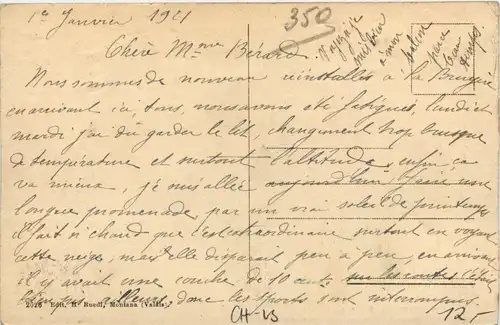 1er Janvier 1921
350
Chère Mme Bérard.
Nous sommes de nouveau réinstallés à la Bruyère
en arrivant ici, tous, nous avons été fatigués, lundi et
mardi j'ai dû garder le lit, changement trop brusque
de température et surtout l'altitude, enfin ça
va mieux, je suis allée aujourd'hui faire une
longue promenade par un vrai soleil de printemps
il fait si chaud que c'est extraordinaire surtout en voyant
cette neige, mais elle disparait peu à peu, en arrivant
il y avait une couche de 10 cent. sur les routes
ailleurs donc les sports sont interrompus.
2026 Edit. H. Ruedi, Montana (Valais)
CH-VS
12,-